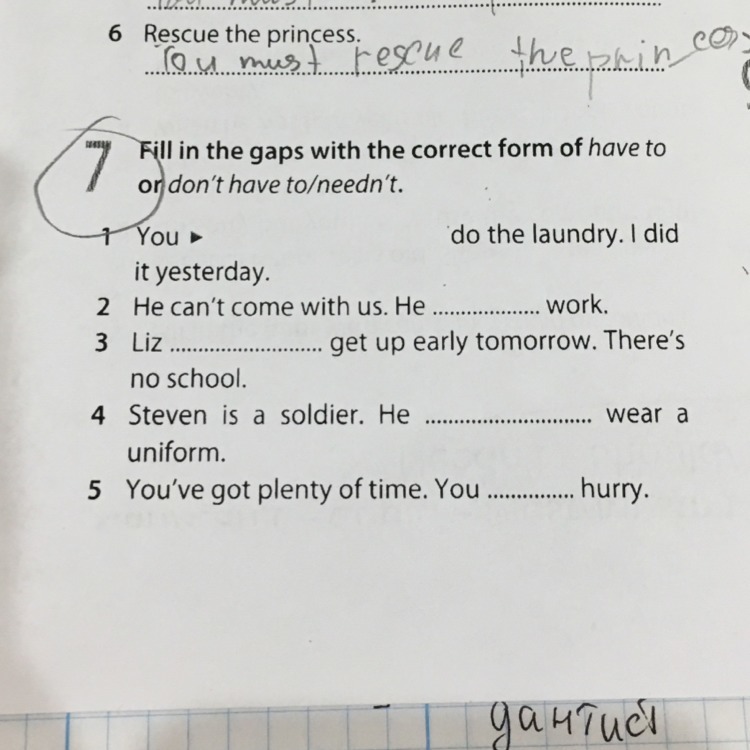 6 Rescue the princess.
You must rescue the prin ces
7 Fill in the gaps with the correct form of have to
or don't have to/needn't.
1 You ► do the laundry. I did
it yesterday.
2 He can't come with us. He .................. work.
3 Liz .......................... get up early tomorrow. There's
no school.
4 Steven is a soldier. He ............................ wear a
uniform.
5 You've got plenty of time. You ............... hurry.